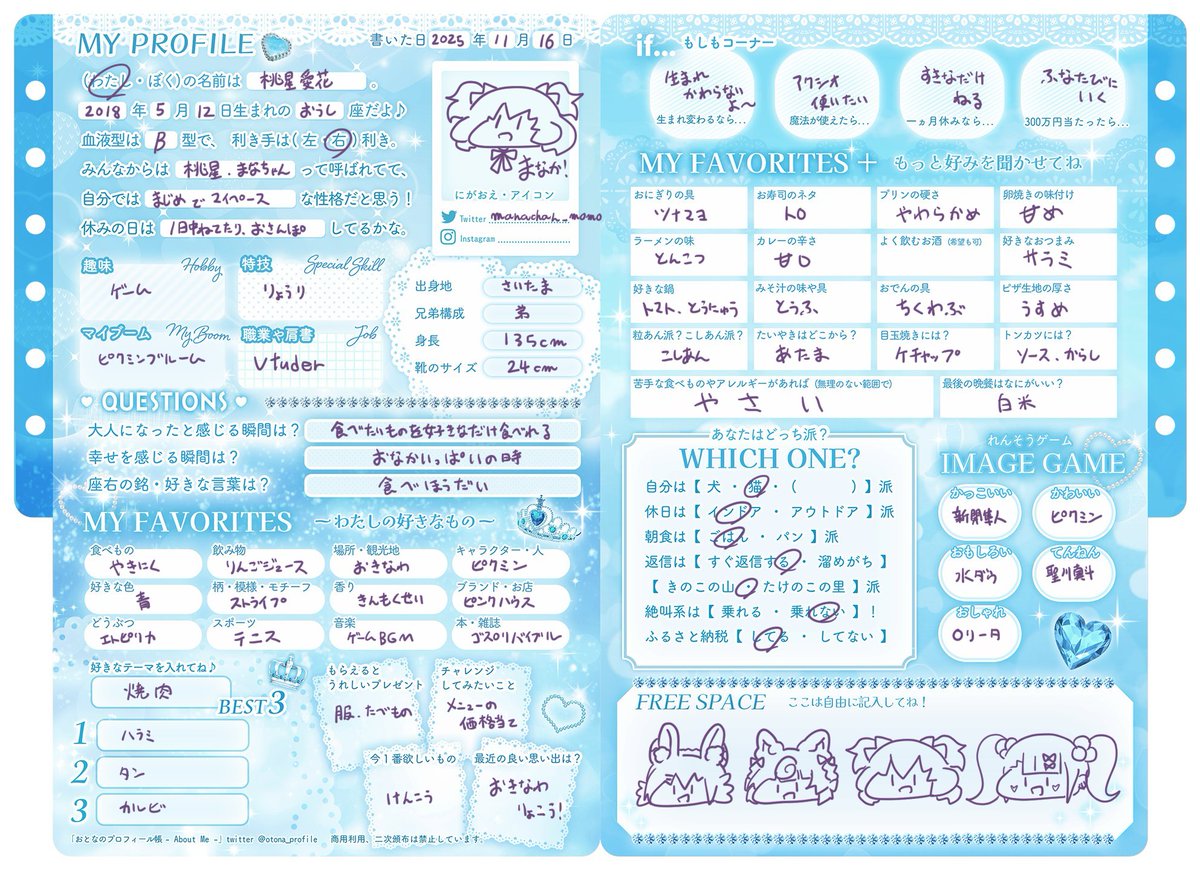 MY PROFILE
書いた日 2025 年 11 月 16 日
(わたし・ぼく)の名前は 桃星愛花 。
2018 年 5 月 12 日生まれの おうし 座だよ♪
血液型は B 型で、 利き手は(左・右)利き。
みんなからは 桃星.まなちゃん って呼ばれてて、
自分では まじめでマイペース な性格だと思う!
休みの日は 1日中ねてたり、おさんぽ してるかな。
まなか!
にがおえ・アイコン
Twitter manachan_momo
Instagram
趣味 Hobby
ゲーム
特技 Special Skill
りょうり
マイブーム My Boom
ピクミンブルーム
職業や肩書 Job
Vtuder
出身地 さいたま
兄弟構成 弟
身長 135cm
靴のサイズ 24cm
QUESTIONS
大人になったと感じる瞬間は? 食べたいものを好きなだけ食べれる
幸せを感じる瞬間は? おなかいっぱいの時
座右の銘・好きな言葉は? 食べほうだい
MY FAVORITES ~わたしの好きなもの~
食べもの 飲み物 場所・観光地 キャラクター・人
やきにく りんごジュース おきなわ ピクミン
好きな色 柄・模様・モチーフ 香り ブランド・お店
青 ストライプ きんもくせい ピンクハウス
どうぶつ スポーツ 音楽 本・雑誌
エトピリカ テニス ゲームBGM ゴスロリバイブル
好きなテーマを入れてね♪
焼肉
BEST3
1 ハラミ
2 タン
3 カルビ
もらえると
うれしいプレゼント
服.たべもの
チャレンジ
してみたいこと
メニューの
価格当て
今1番欲しいもの
けんこう
最近の良い思い出は?
おきなわ
りょこう!
「おとなのプロフィール帳 - About Me -」twitter @otona_profile 商用利用、二次頒布は禁止しています。
if... もしもコーナー
生まれ
かわらない
よ〜
生まれ変わるなら…
アクシオ
使いたい
魔法が使えたら…
すきなだけ
ねる
一ヵ月休みなら…
ふなたびに
いく
300万円当たったら…
MY FAVORITES + もっと好みを聞かせてね
おにぎりの具 お寿司のネタ プリンの硬さ 卵焼きの味付け
ツナマヨ トロ やわらかめ 甘め
ラーメンの味 カレーの辛さ よく飲むお酒(希望も可) 好きなおつまみ
とんこつ 甘口 サラミ
好きな鍋 みそ汁の味や具 おでんの具 ピザ生地の厚さ
トマト、とうにゅう とうふ ちくわぶ うすめ
粒あん派?こしあん派? たいやきはどこから? 目玉焼きには? トンカツには?
こしあん あたま ケチャップ ソース、からし
苦手な食べものやアレルギーがあれば(無理のない範囲で) 最後の晩餐はなにがいい?
やさい 白米
あなたはどっち派?
WHICH ONE?
自分は【 犬 ・ 猫 ・ ( ) 】派
休日は【 インドア ・ アウトドア 】派
朝食は【 ごはん ・ パン 】派
返信は【 すぐ返信する ・ 溜めがち 】
【 きのこの山 ・ たけのこの里 】派
絶叫系は【 乗れる ・ 乗れない 】!
ふるさと納税【 してる ・ してない 】
れんそうゲーム
IMAGE GAME
かっこいい かわいい
新開隼人 ピクミン
おもしろい てんねん
水ダウ 聖川真斗
おしゃれ
ロリータ
FREE SPACE ここは自由に記入してね!